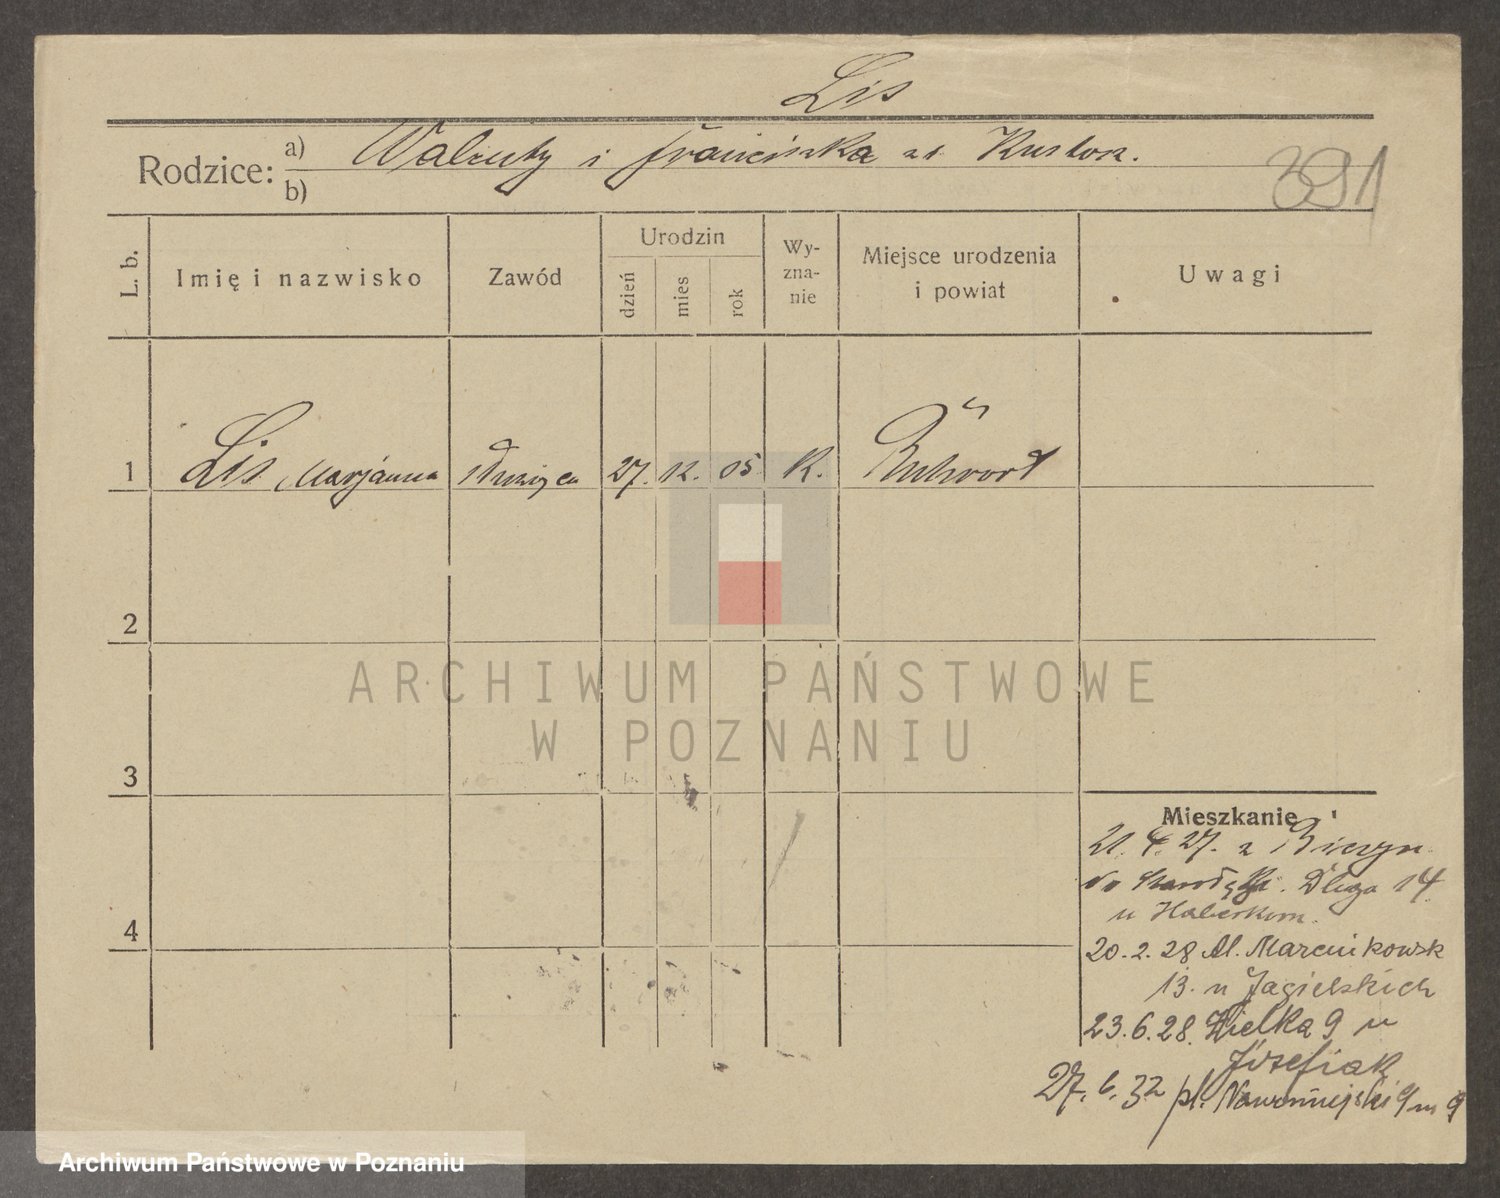 Lis
Rodzice: a) Walenty i Franciszka
b)
391
L. b. Imię i nazwisko Zawód Urodzin dzień mies rok Wy-zna-nie Miejsce urodzenia i powiat Uwagi
1 Lis Marjanna służąca 27. 12. 05 K. Ruhrort
2
3
4
ARCHIWUM PAŃSTWOWE
W POZNANIU
Mieszkanie
21. 4. 27. z
Długa 14
u
20. 2. 28 Al. Marcinkowsk
13. u Jagielskich
23. 6. 28. Wielka 9 u
Józefiak
27. 6. 32 pl. Nowomiejski 9 m 9
Archiwum Państwowe w Poznaniu